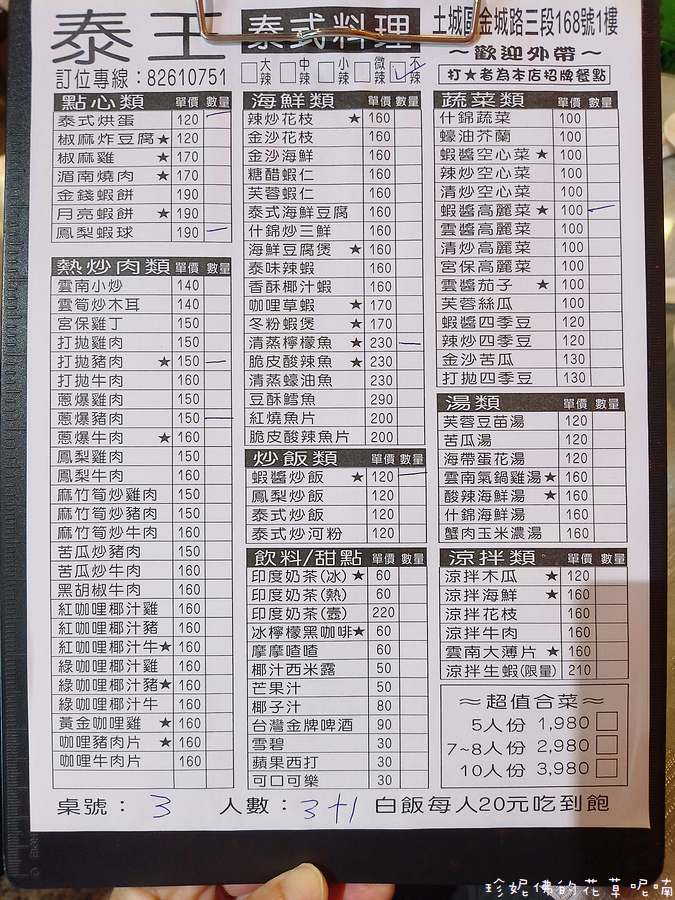 泰王 泰式料理 土城區金城路三段168號1樓
～歡迎外帶～
訂位專線：82610751 大辣 中辣 小辣 微辣 不辣 打★者為本店招牌餐點
點心類 單價 數量
泰式烘蛋 120
椒麻炸豆腐★ 120
椒麻雞 ★ 170
湄南燒肉 ★ 170
金錢蝦餅 190
月亮蝦餅 ★ 190
鳳梨蝦球 190
熱炒肉類 單價 數量
雲南小炒 140
雲筍炒木耳 140
宮保雞丁 150
打拋雞肉 150
打拋豬肉 ★ 150
打拋牛肉 160
蔥爆雞肉 150
蔥爆豬肉 150
蔥爆牛肉 ★ 160
鳳梨雞肉 150
鳳梨牛肉 160
麻竹筍炒雞肉 150
麻竹筍炒豬肉 150
麻竹筍炒牛肉 160
苦瓜炒豬肉 150
苦瓜炒牛肉 160
黑胡椒牛肉 160
紅咖哩椰汁雞 160
紅咖哩椰汁豬 160
紅咖哩椰汁牛★ 160
綠咖哩椰汁雞 160
綠咖哩椰汁豬★ 160
綠咖哩椰汁牛 160
黃金咖哩雞 ★ 160
咖哩豬肉片 ★ 160
咖哩牛肉片 160
海鮮類 單價 數量
辣炒花枝 ★ 160
金沙花枝 160
金沙海鮮 160
糖醋蝦仁 160
芙蓉蝦仁 160
泰式海鮮豆腐 160
什錦炒三鮮 160
海鮮豆腐煲 ★ 160
泰味辣蝦 160
香酥椰汁蝦 160
咖哩草蝦 ★ 170
冬粉蝦煲 ★ 170
清蒸檸檬魚 ★ 230
脆皮酸辣魚 ★ 230
清蒸蠔油魚 230
豆酥鱈魚 290
紅燒魚片 200
脆皮酸辣魚片 200
炒飯類 單價 數量
蝦醬炒飯 ★ 120
鳳梨炒飯 120
泰式炒飯 120
泰式炒河粉 120
飲料/甜點 單價 數量
印度奶茶(冰)★ 60
印度奶茶(熱) 60
印度奶茶(壺) 220
冰檸檬黑咖啡★ 60
摩摩喳喳 60
椰汁西米露 50
芒果汁 50
椰子汁 80
台灣金牌啤酒 90
雪碧 30
蘋果西打 30
可口可樂 30
蔬菜類 單價 數量
什錦蔬菜 100
蠔油芥蘭 100
蝦醬空心菜★ 100
辣炒空心菜 100
清炒空心菜 100
蝦醬高麗菜★ 100
雲醬高麗菜 100
清炒高麗菜 100
宮保高麗菜 100
雲醬茄子 ★ 100
芙蓉絲瓜 100
蝦醬四季豆 120
辣炒四季豆 120
金沙苦瓜 130
打拋四季豆 130
湯類 單價 數量
芙蓉豆苗湯 120
苦瓜湯 120
海帶蛋花湯 120
雲南氣鍋雞湯★ 160
酸辣海鮮湯 ★ 160
什錦海鮮湯 160
蟹肉玉米濃湯 160
涼拌類 單價 數量
涼拌木瓜 ★ 120
涼拌海鮮 ★ 160
涼拌花枝 160
涼拌牛肉 160
雲南大薄片 ★ 160
涼拌生蝦(限量) 210
～超值合菜～
5人份 1,980
7~8人份 2,980
10人份 3,980
桌號：3 人數：3+1 白飯每人20元吃到飽
珍妮佛的花草呢喃